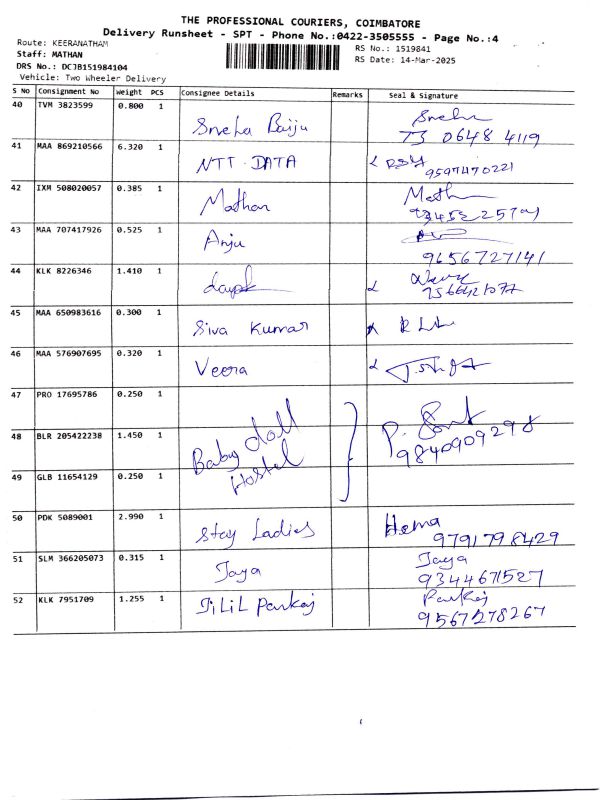 THE PROFESSIONAL COURIERS, COIMBATORE
Delivery Runsheet - SPT - Phone No.:0422-3505555 - Page No.:4
Route: KEERANATHAM
Staff: MATHAN
DRS No.: DCJB151984104
Vehicle: Two Wheeler Delivery
RS No.: 1519841
RS Date: 14-Mar-2025
S No Consignment No Weight PCS Consignee Details Remarks Seal & Signature
40 TVM 3823599 0.800 1 Sneha Baiju Sneha
73 0648 4119
41 MAA 869210566 6.320 1 NTT DATA
9597470221
42 IXM 508020057 0.385 1 Mathan Math
43 MAA 707417926 0.525 1 Anju
9656727141
44 KLK 8226346 1.410 1
45 MAA 650983616 0.300 1 Siva Kumar
46 MAA 576907695 0.320 1 Veera
47 PRO 17695786 0.250 1
48 BLR 205422238 1.450 1 Baby doll
Hostel
9840909298
49 GLB 11654129 0.250 1
50 PDK 5089001 2.990 1 Stay Ladies Hema
9791798429
51 SLM 366205073 0.315 1 Jaya Jaya
9344671527
52 KLK 7951709 1.255 1 JiLiL Pankaj Pankaj
9567278267